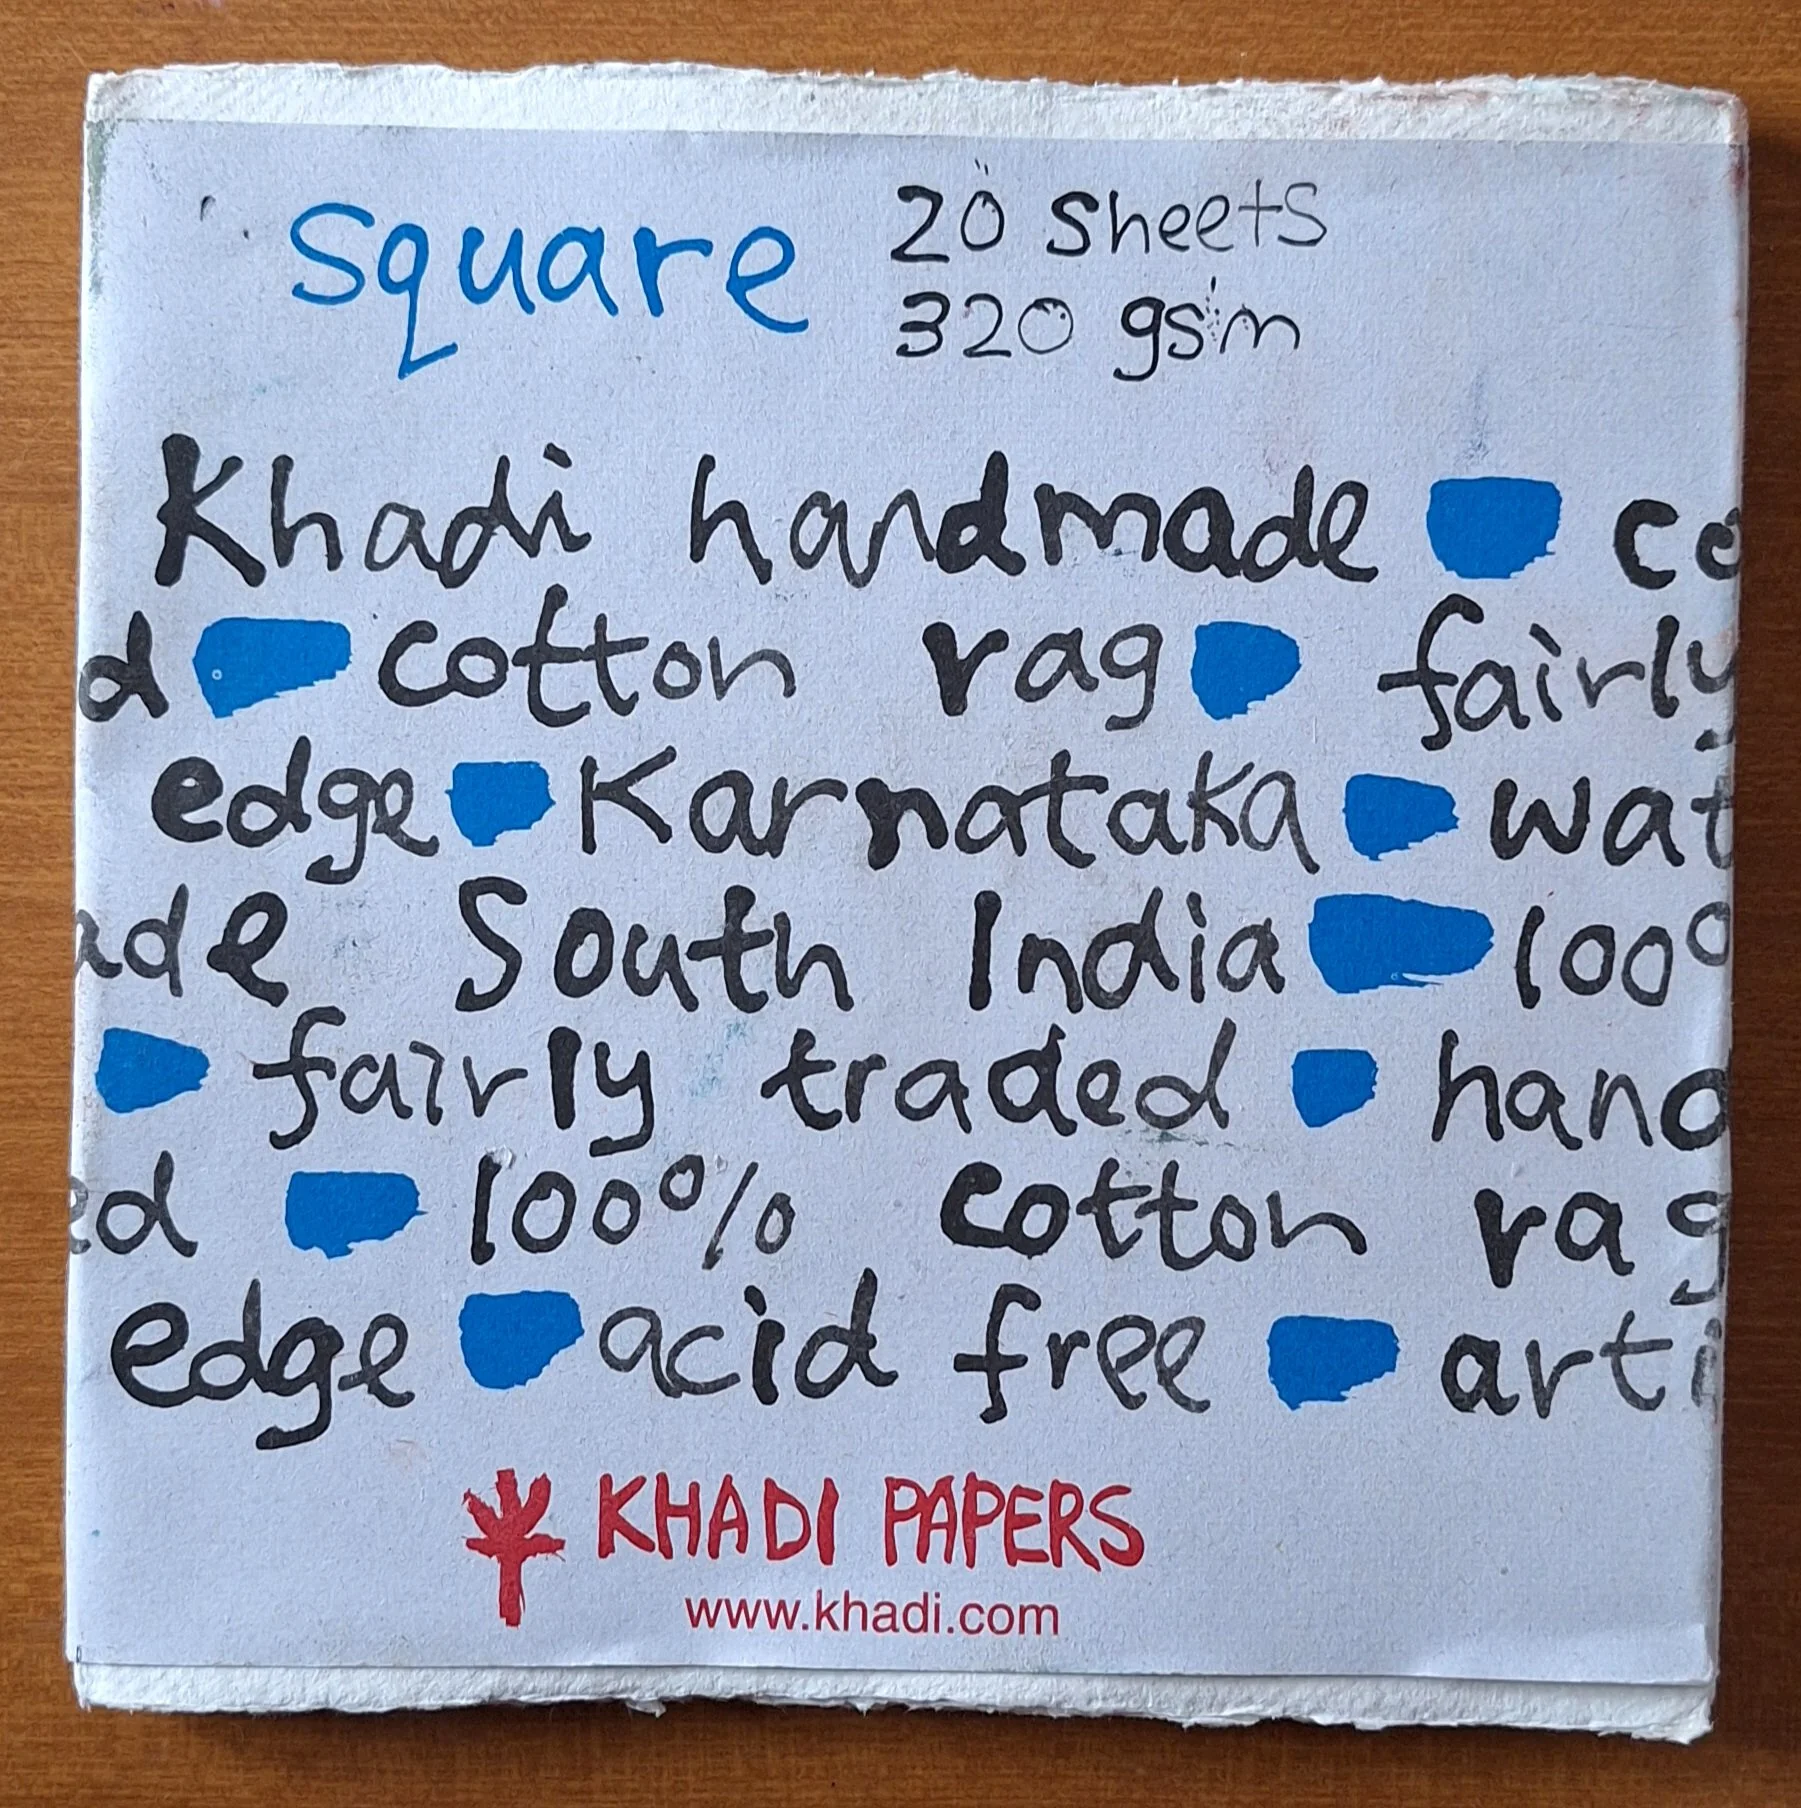 square
20 sheets
320 gsm
Khadi handmade co
d cotton rag fairly
edge Karnataka wat
ade South India 100
fairly traded hand
ed 100% cotton rag
edge acid free arti
KHADI PAPERS
www.khadi.com